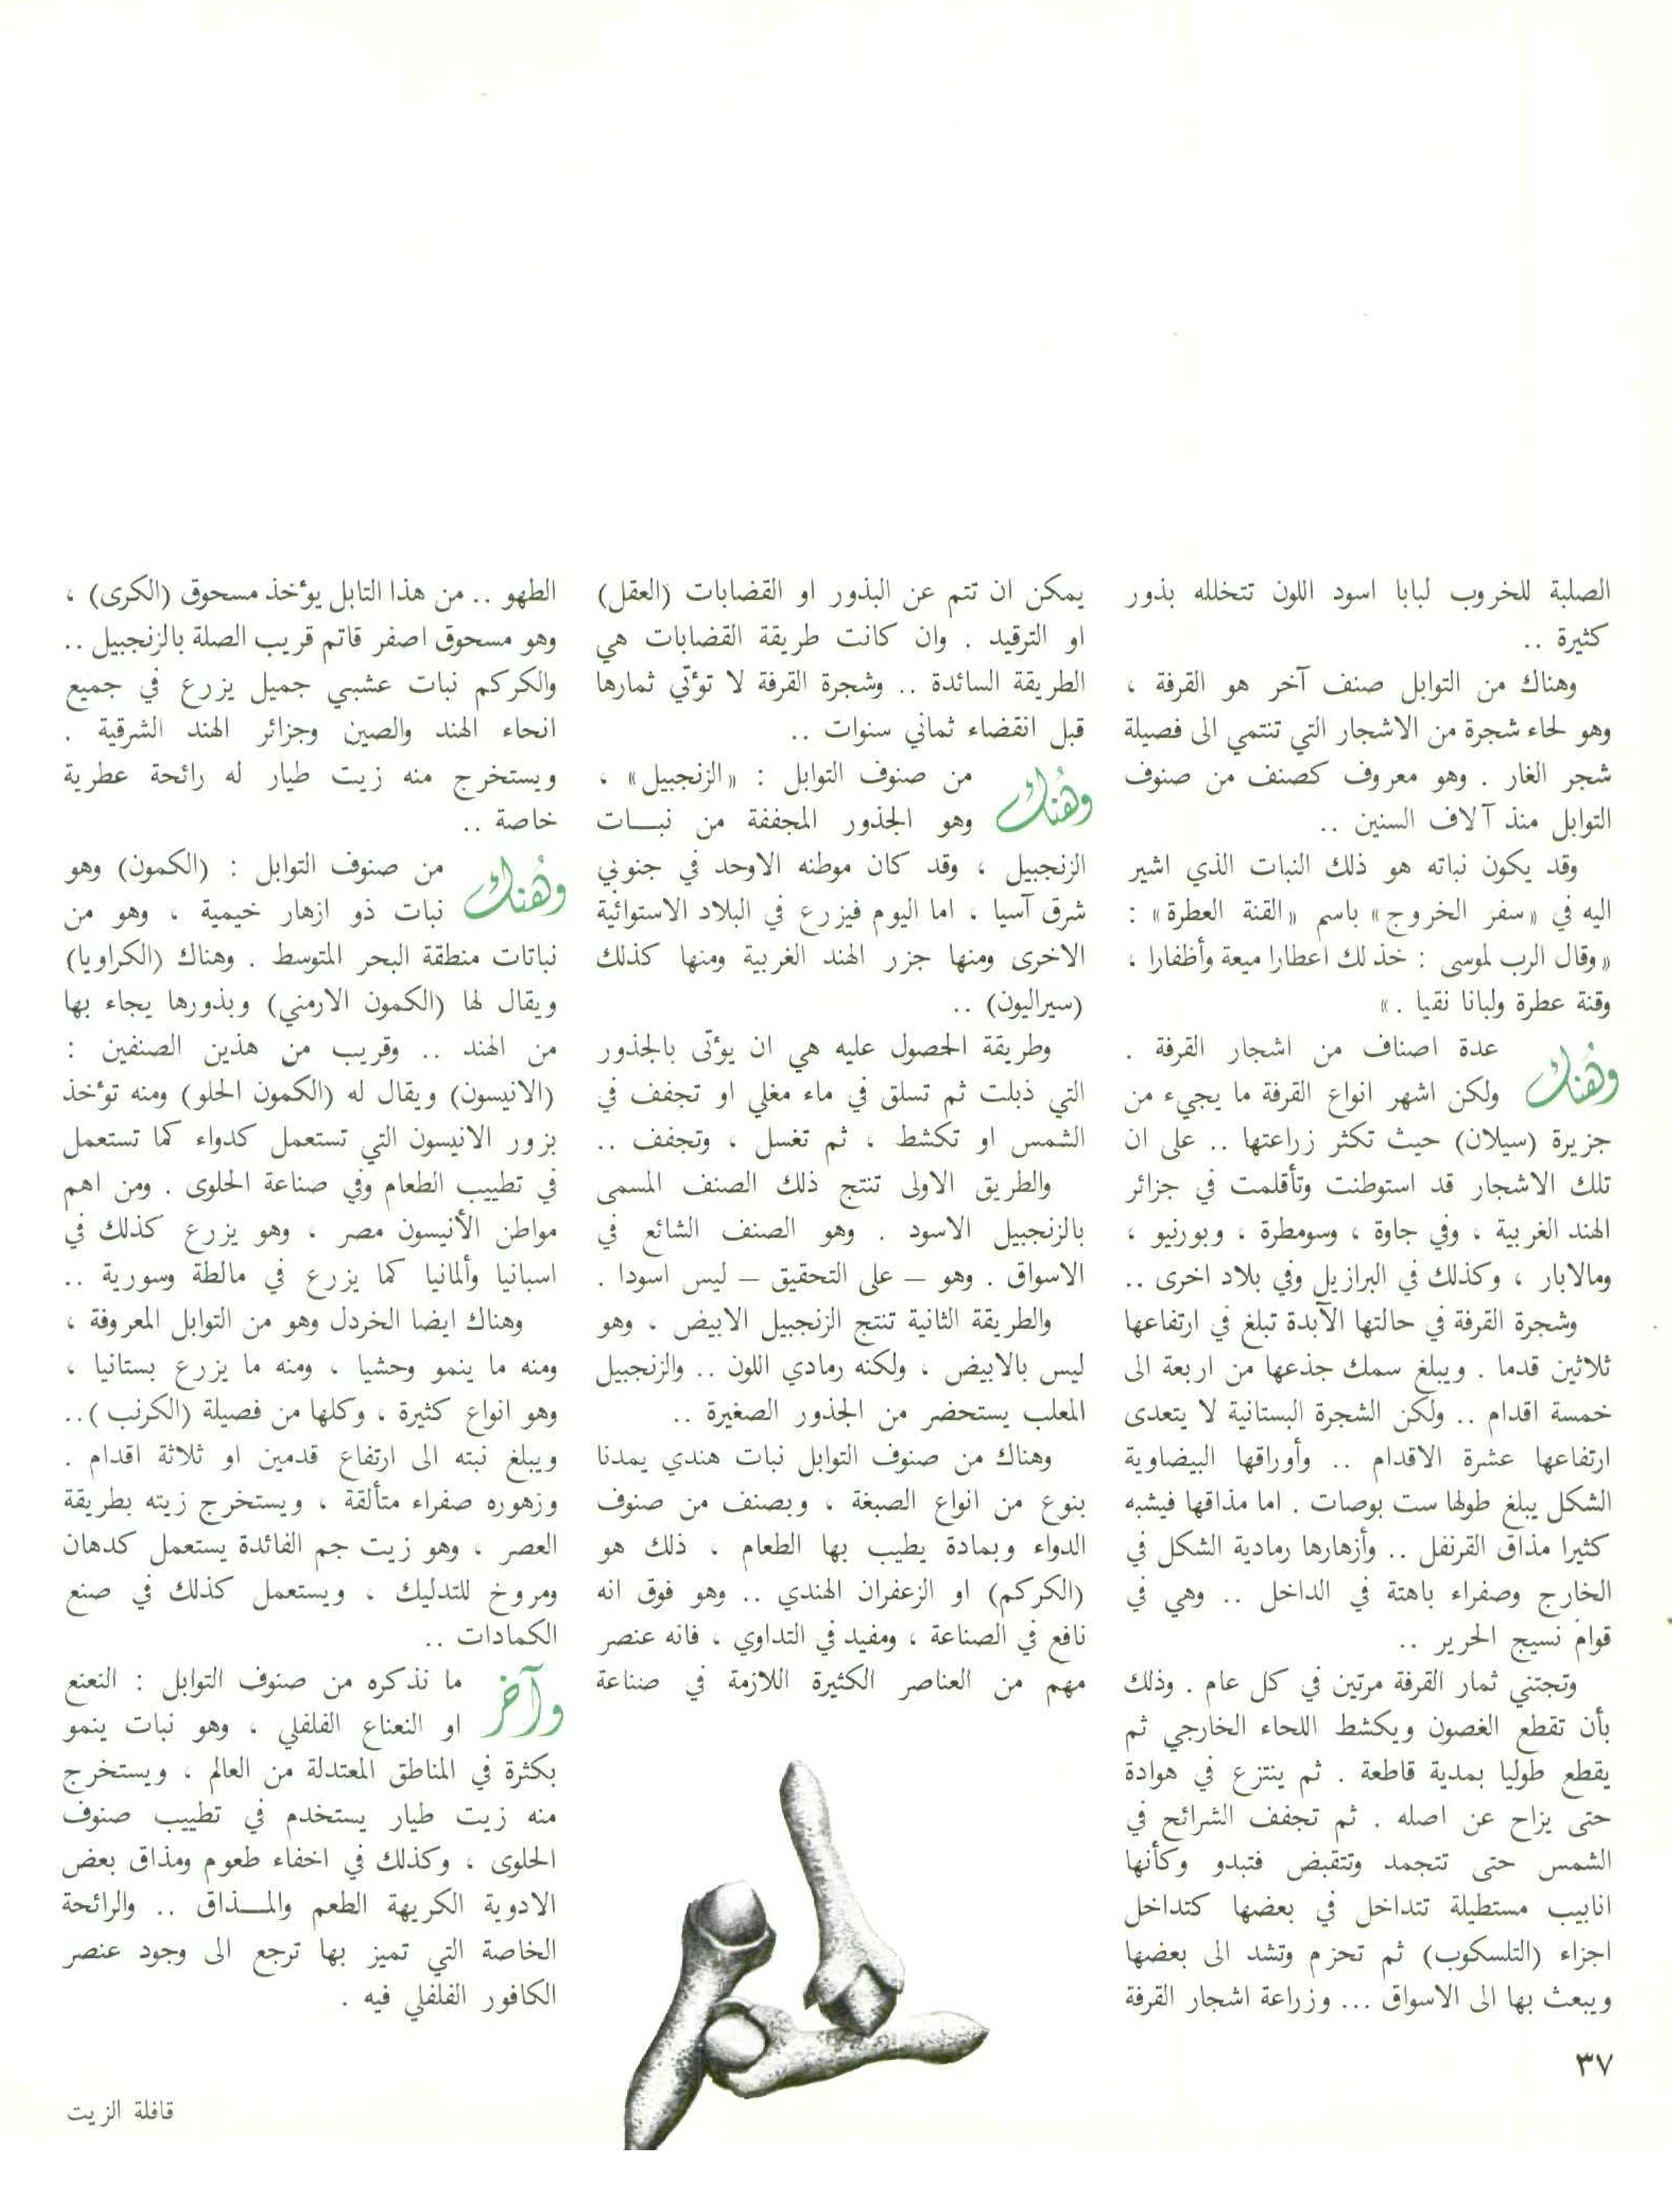 الصلبة للخروب لبابا اسود اللون تتخلله بذور
كثيرة ..
وهناك من التوابل صنف آخر هو القرفة ،
وهو لحاء شجرة من الاشجار التي تنتمي الى فصيلة
شجر الغار . وهو معروف كصنف من صنوف
التوابل منذ آلاف السنين ..
وقد يكون نباته هو ذلك النبات الذي اشير
اليه في «سفر الخروج» باسم «القنة العطرة» :
«وقال الرب لموسى : خذ لك اعطارا ميعة وأظفارا ،
وقنة عطرة ولبانا نقيا . »
وهناك عدة اصناف من اشجار القرفة .
ولكن اشهر انواع القرفة ما يجيء من
جزيرة (سيلان) حيث تكثر زراعتها .. على ان
تلك الاشجار قد استوطنت وتأقلمت في جزائر
الهند الغربية ، وفي جاوة ، وسومطرة ، وبورنيو ،
ومالابار ، وكذلك في البرازيل وفي بلاد اخرى ..
وشجرة القرفة في حالتها الآبدة تبلغ في ارتفاعها
ثلاثين قدما . ويبلغ سمك جذعها من اربعة الى
خمسة اقدام .. ولكن الشجرة البستانية لا يتعدى
ارتفاعها عشرة الاقدام .. وأوراقها البيضاوية
الشكل يبلغ طولها ست بوصات . اما مذاقها فيشبه
كثيرا مذاق القرنفل .. وأزهارها رمادية الشكل في
الخارج وصفراء باهتة في الداخل .. وهي في
قوام نسيج الحرير ..
وتجتني ثمار القرفة مرتين في كل عام . وذلك
بأن تقطع الغصون ويكشط اللحاء الخارجي ثم
يقطع طوليا بمدية قاطعة . ثم ينتزع في هوادة
حتى يزاح عن اصله . ثم تجفف الشرائح في
الشمس حتى تتجمد وتتقبض فتبدو وكأنها
انابيب مستطيلة تتداخل في بعضها كتداخل
اجزاء (التلسكوب) ثم تحزم وتشد الى بعضها
ويبعث بها الى الاسواق ... وزراعة اشجار القرفة
يمكن ان تتم عن البذور او القضابات (العقل)
او الترقيد . وان كانت طريقة القضابات هي
الطريقة السائدة .. وشجرة القرفة لا تؤتي ثمارها
قبل انقضاء ثماني سنوات ..
وهناك من صنوف التوابل : «الزنجبيل» ،
وهو الجذور المجففة من نبـــات
الزنجبيل ، وقد كان موطنه الاوحد في جنوبي
شرق آسيا ، اما اليوم فيزرع في البلاد الاستوائية
الاخرى ومنها جزر الهند الغربية ومنها كذلك
(سيراليون) ..
وطريقة الحصول عليه هي ان يؤتى بالجذور
التي ذبلت ثم تسلق في ماء مغلي او تجفف في
الشمس او تكشط ، ثم تغسل ، وتجفف ..
والطريق الاولى تنتج ذلك الصنف المسمى
بالزنجبيل الاسود . وهو الصنف الشائع في
الاسواق . وهو – على التحقيق – ليس اسودا .
والطريقة الثانية تنتج الزنجبيل الابيض ، وهو
ليس بالابيض ، ولكنه رمادي اللون .. والزنجبيل
المعلب يستحضر من الجذور الصغيرة ..
وهناك من صنوف التوابل نبات هندي يمدنا
بنوع من انواع الصبغة ، وبصنف من صنوف
الدواء وبمادة يطيب بها الطعام ، ذلك هو
(الكركم) او الزعفران الهندي .. وهو فوق انه
نافع في الصناعة ، ومفيد في التداوي ، فانه عنصر
مهم من العناصر الكثيرة اللازمة في صناعة
الطهو .. من هذا التابل يؤخذ مسحوق (الكرى) ،
وهو مسحوق اصفر قاتم قريب الصلة بالزنجبيل ..
والكركم نبات عشبي جميل يزرع في جميع
انحاء الهند والصين وجزائر الهند الشرقية .
ويستخرج منه زيت طيار له رائحة عطرية
خاصة ..
وهناك من صنوف التوابل : (الكمون) وهو
نبات ذو ازهار خيمية ، وهو من
نباتات منطقة البحر المتوسط . وهناك (الكراويا)
ويقال لها (الكمون الارمني) وبذورها يجاء بها
من الهند .. وقريب من هذين الصنفين :
(الانيسون) ويقال له (الكمون الحلو) ومنه تؤخذ
بزور الانيسون التي تستعمل كدواء كما تستعمل
في تطييب الطعام وفي صناعة الحلوى . ومن اهم
مواطن الأنيسون مصر ، وهو يزرع كذلك في
اسبانيا وألمانيا كما يزرع في مالطة وسورية ..
وهناك ايضا الخردل وهو من التوابل المعروفة ،
ومنه ما ينمو وحشيا ، ومنه ما يزرع بستانيا ،
وهو انواع كثيرة ، وكلها من فصيلة (الكرنب )..
ويبلغ نبته الى ارتفاع قدمين او ثلاثة اقدام .
وزهوره صفراء متألقة ، ويستخرج زيته بطريقة
العصر ، وهو زيت جم الفائدة يستعمل كدهان
ومروخ للتدليك ، ويستعمل كذلك في صنع
الكمادات ..
وآخر ما نذكره من صنوف التوابل : النعنع
او النعناع الفلفلي ، وهو نبات ينمو
بكثرة في المناطق المعتدلة من العالم ، ويستخرج
منه زيت طيار يستخدم في تطييب صنوف
الحلوى ، وكذلك في اخفاء طعوم ومذاق بعض
الادوية الكريهة الطعم والمـــذاق .. والرائحة
الخاصة التي تميز بها ترجع الى وجود عنصر
الكافور الفلفلي فيه .
٣٧
قافلة الزيت